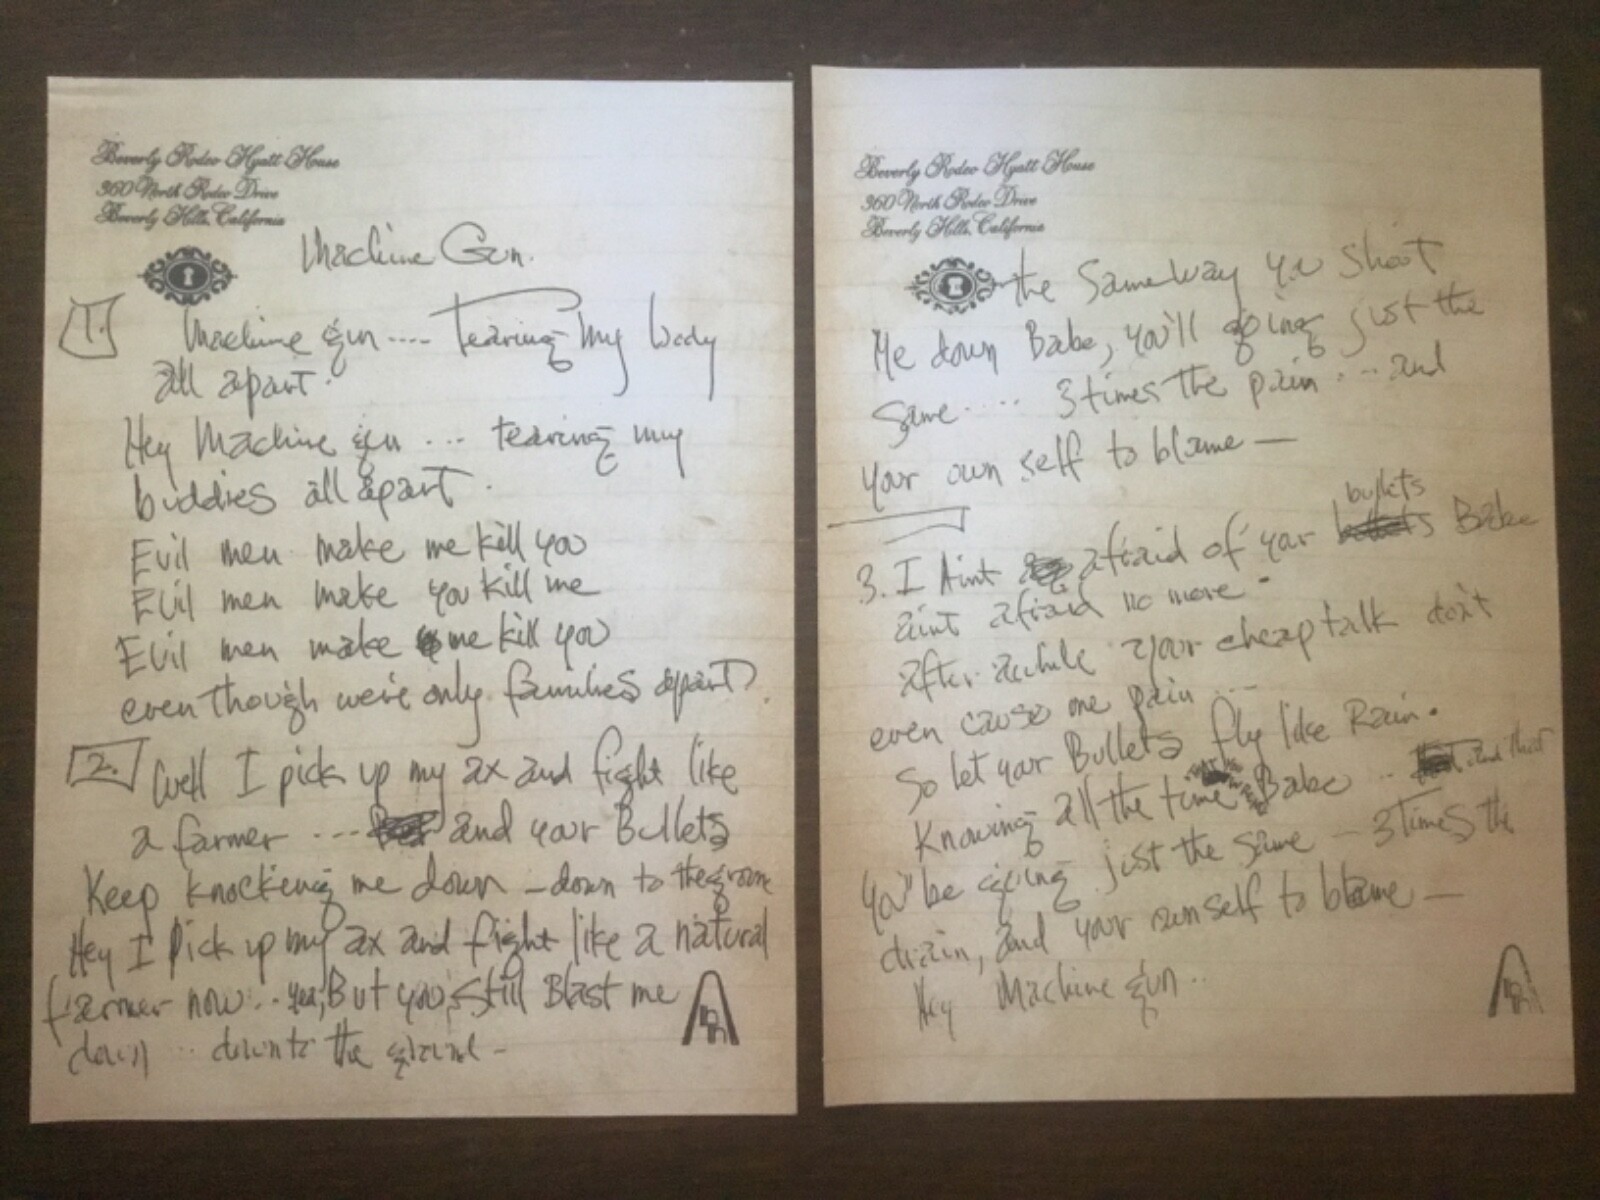 Beverly Rodeo Hyatt House
360 North Rodeo Drive
Beverly Hills, California
Machine Gun.
1. Machine gun .... Tearing my body
all apart.
Hey Machine gun ... tearing my
buddies all apart.
Evil men make me kill you
Evil men make you kill me
Evil men make me kill you
even though we're only families apart.
2. Well I pick up my ax and fight like
a farmer ---- and your Bullets
Keep knocking me down - down to the groun
Hey I Pick up my ax and fight like a natural
farmer now .. yea, But you still Blast me
down ... down to the ground -
Beverly Rodeo Hyatt House
360 North Rodeo Drive
Beverly Hills, California
the Same way you Shoot
Me down Babe, you'll going just the
Same ..... 3 times the pain .... and
your own self to blame —
bullets
3. I Aint afraid of your Babe
aint afraid no more.
after awhile your cheap talk don't
even cause me pain ...
So let your Bullets fly like Rain.
Knowing all the time Babe .. and that
You'll be going just the same — 3 Times the
pain, and your own self to blame —
Hey Machine gun ..